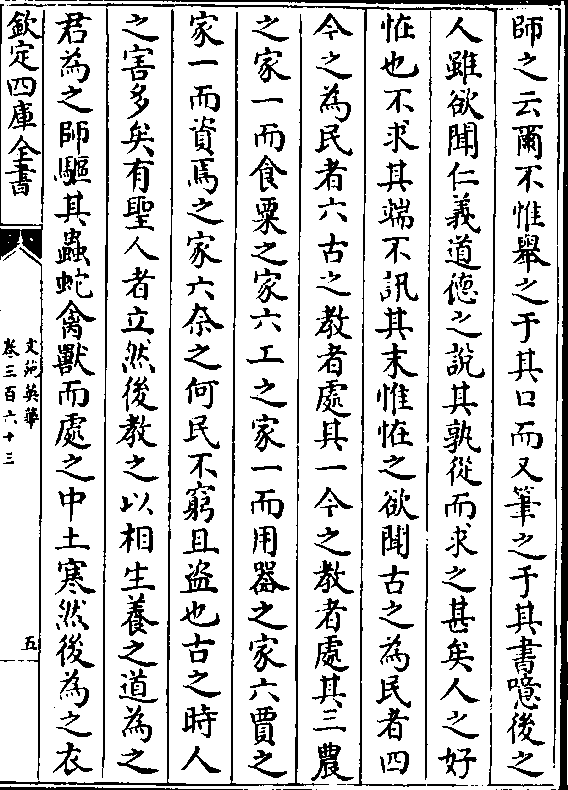 師之云爾不惟舉之于其口而又筆之于其書噫後之
人雖欲聞仁義道德之說其孰從而求之甚矣人之好
恠也不求其端不訊其末惟恠之欲聞古之為民者四
今之為民者六古之教者處其一今之教者處其三農
之家一而食粟之家六工之家一而用器之家六賈之
家一而資焉之家六奈之何民不窮且盗也古之時人
之害多矣有聖人者立然後教之以相生養之道為之
君為之師驅其蟲蛇禽獸而處之中土寒然後為之衣
欽定四庫全書
文苑英華
卷三百六十三
五